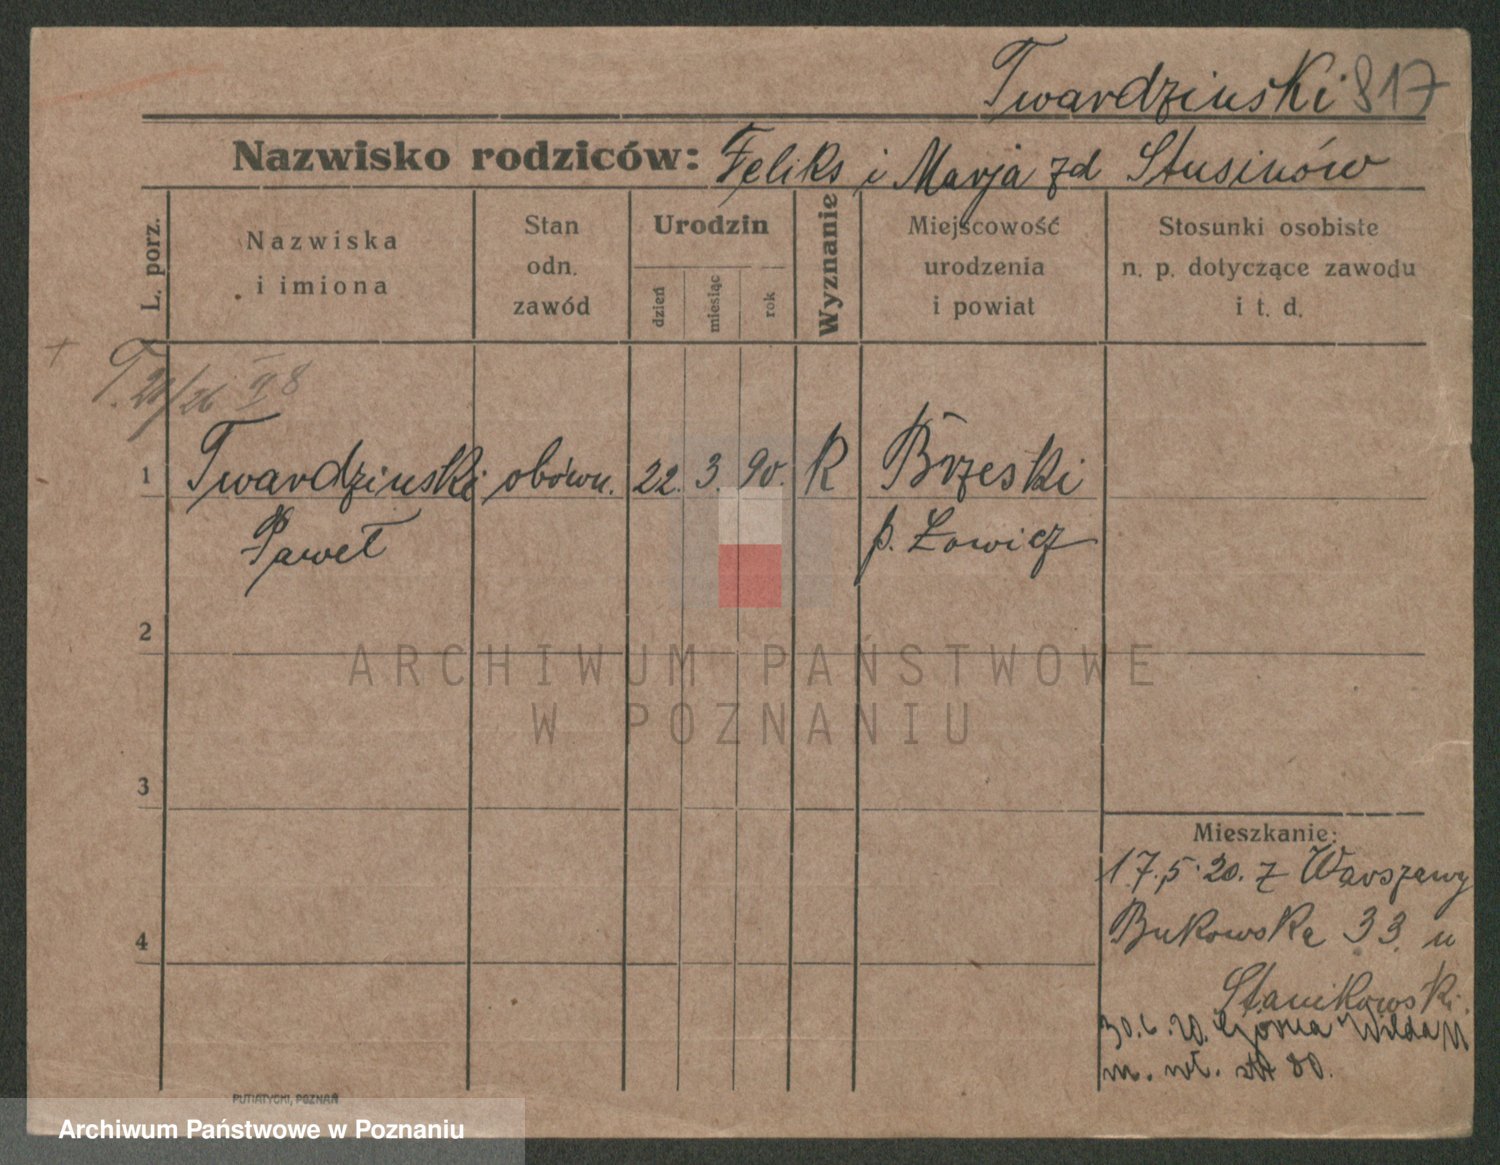 Twardziński 817
Nazwisko rodziców: Feliks i Marja zd Stusinów
L. porz.
Nazwiska
i imiona
Stan
odn.
zawód
Urodzin
dzień
miesiąc
rok
Wyznanie
Miejscowość
urodzenia
i powiat
Stosunki osobiste
n. p. dotyczące zawodu
i t. d.
1 Twardziński obówn. 22. 3. 90. R Brzeski
Paweł p. Łowicz
2
ARCHIWUM PAŃSTWOWE
W POZNANIU
3
Mieszkanie:
17.5.20. z Warszawy
4
Bukowska 33 u
Stanikowski
30.6.20. Górna Wilda
m. wł. 80.
PUTIATYCKI, POZNAŃ
Archiwum Państwowe w Poznaniu